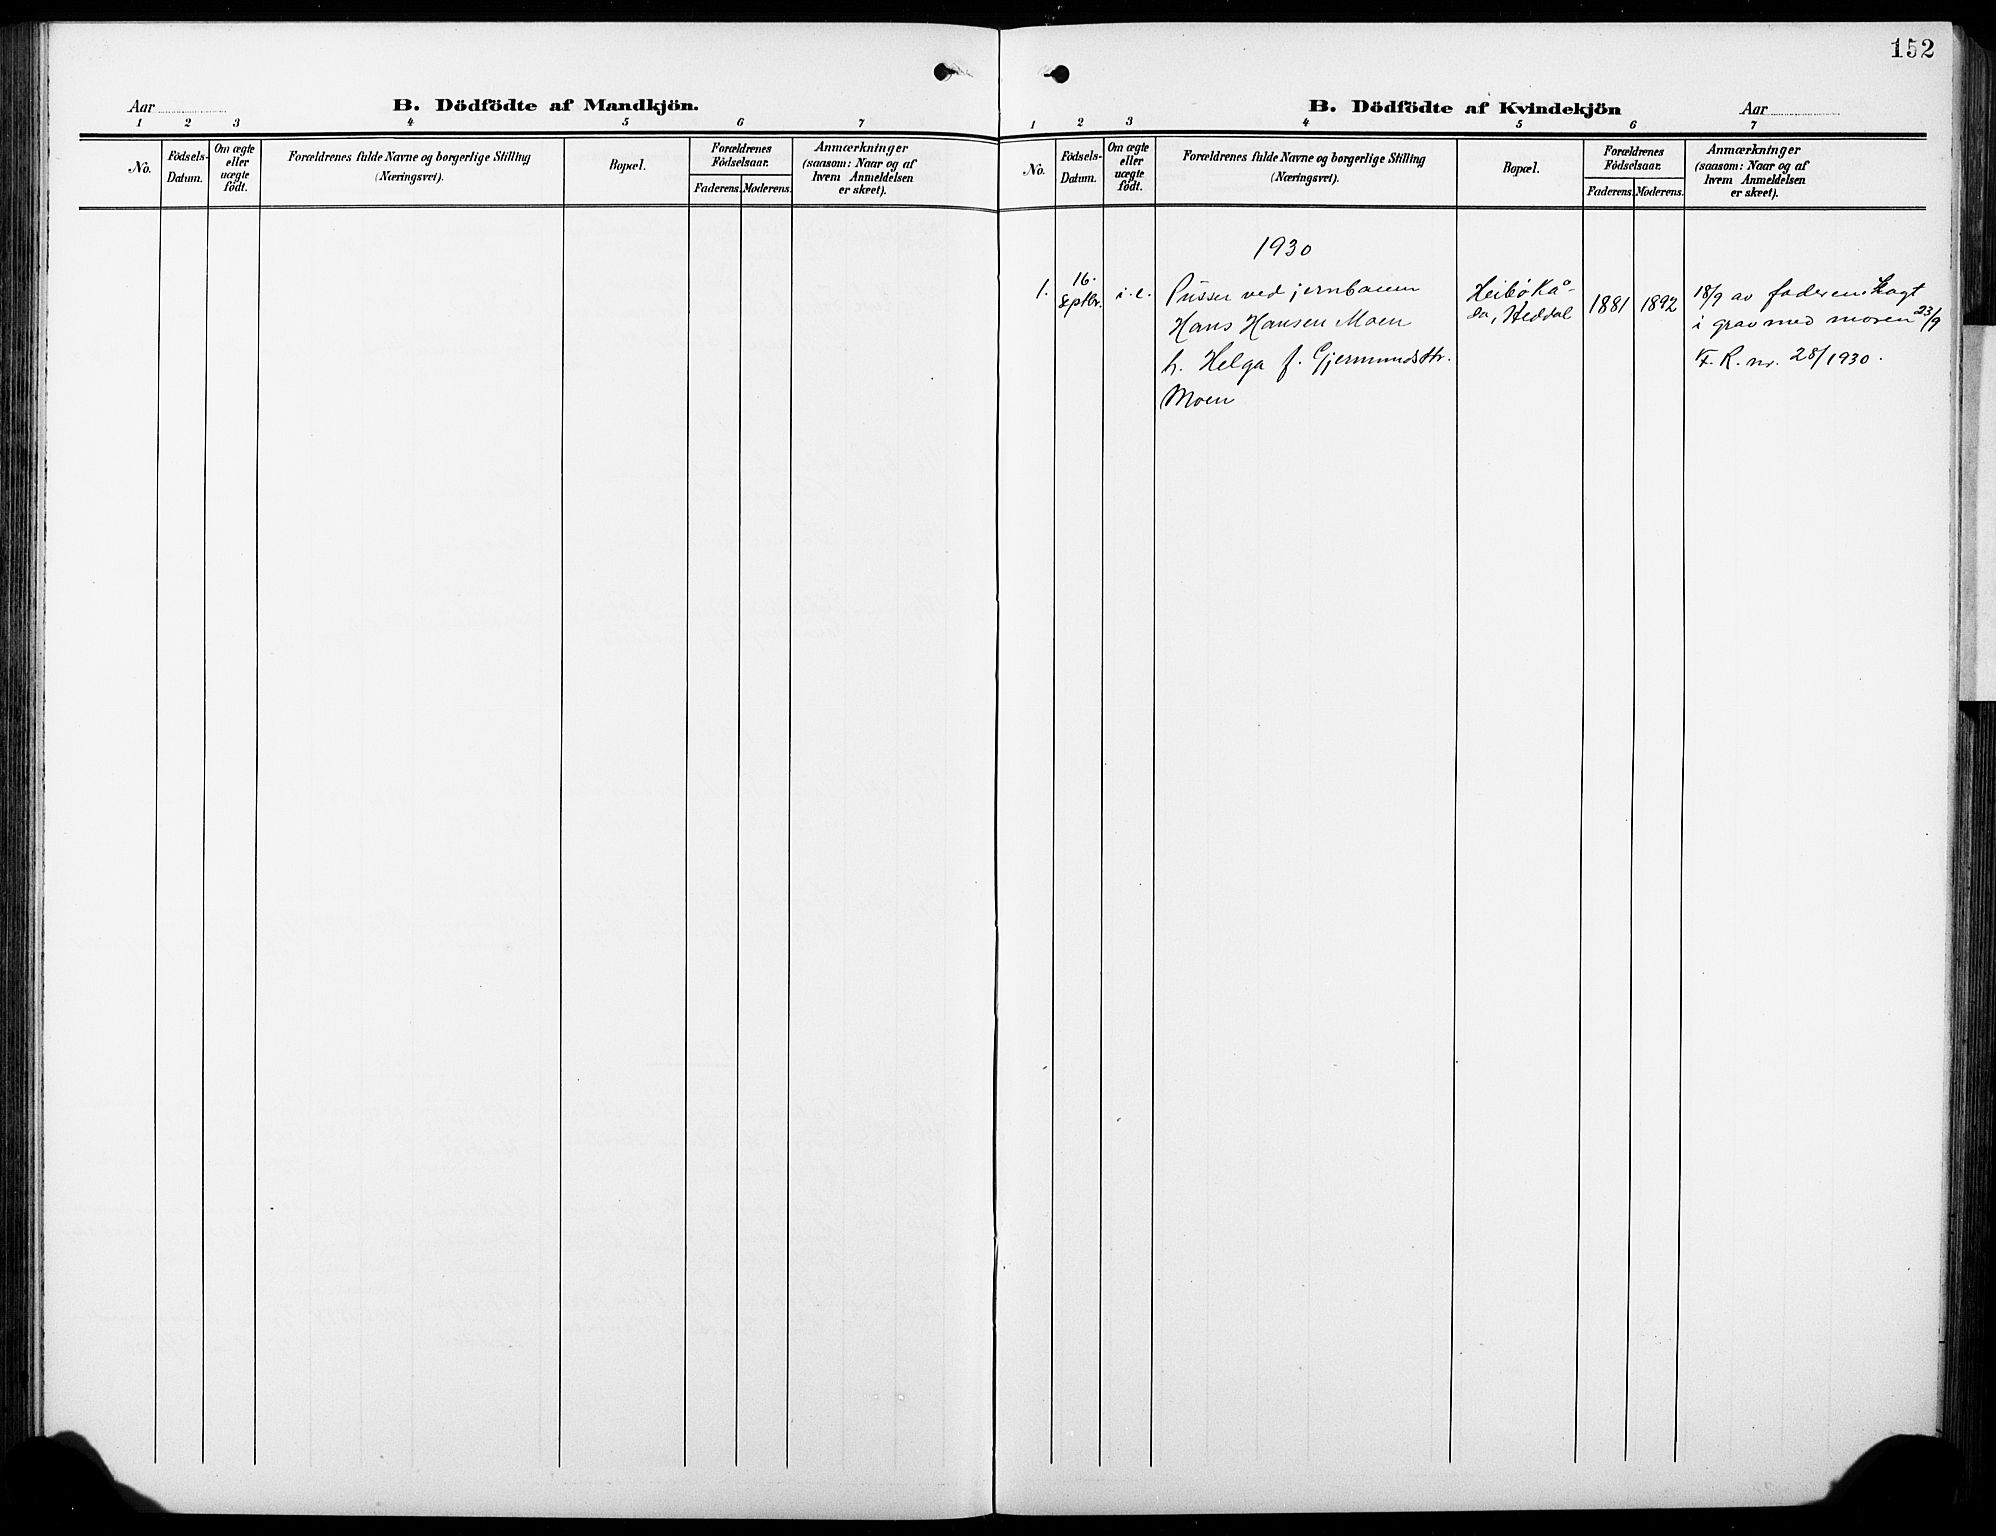 152
Aar
B. Dödfödte af Mandkjön.
1 2 3 4 5 6 7
No.
Födsels-
Datum.
Om ægte
eller
uægte
födt.
Forældrenes fulde Navne og borgerlige Stilling
(Næringsvei).
Bopæl.
Forældrenes
Födselsaar.
Faderens. Moderens.
Anmærkninger
(saasom: Naar og af
hvem Anmeldelsen
er skeet).
B. Dödfödte af Kvindekjön
Aar
1 2 3 4 5 6 7
No.
Födsels-
Datum.
Om ægte
eller
uægte
födt.
Forældrenes fulde Navne og borgerlige Stilling
(Næringsvei).
Bopæl.
Forældrenes
Födselsaar.
Faderens. Moderens.
Anmærkninger
(saasom: Naar og af
hvem Anmeldelsen
er skeet).
1930
1.
16.
septbr.
i. e.
Pusser ved jernbanen
Hans Hansen Moen
h. Helga f. Gjermundsttr.
Moen
Heibø Kå-
sa, Heddal
1881
1892
18/9 av faderen. Lagt
i grav med moren 23/9
F. R. nr. 28/1930.